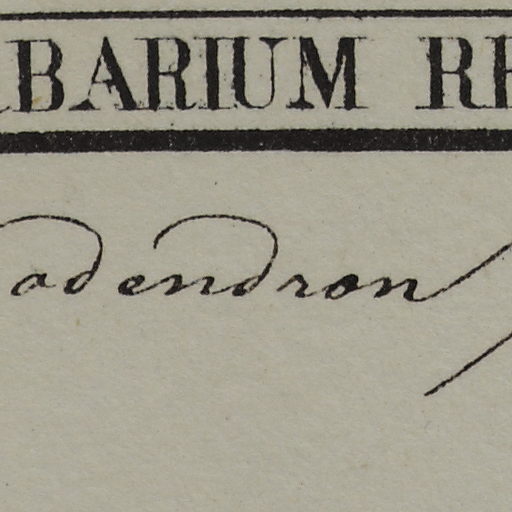 RBARIUM RE
odendron